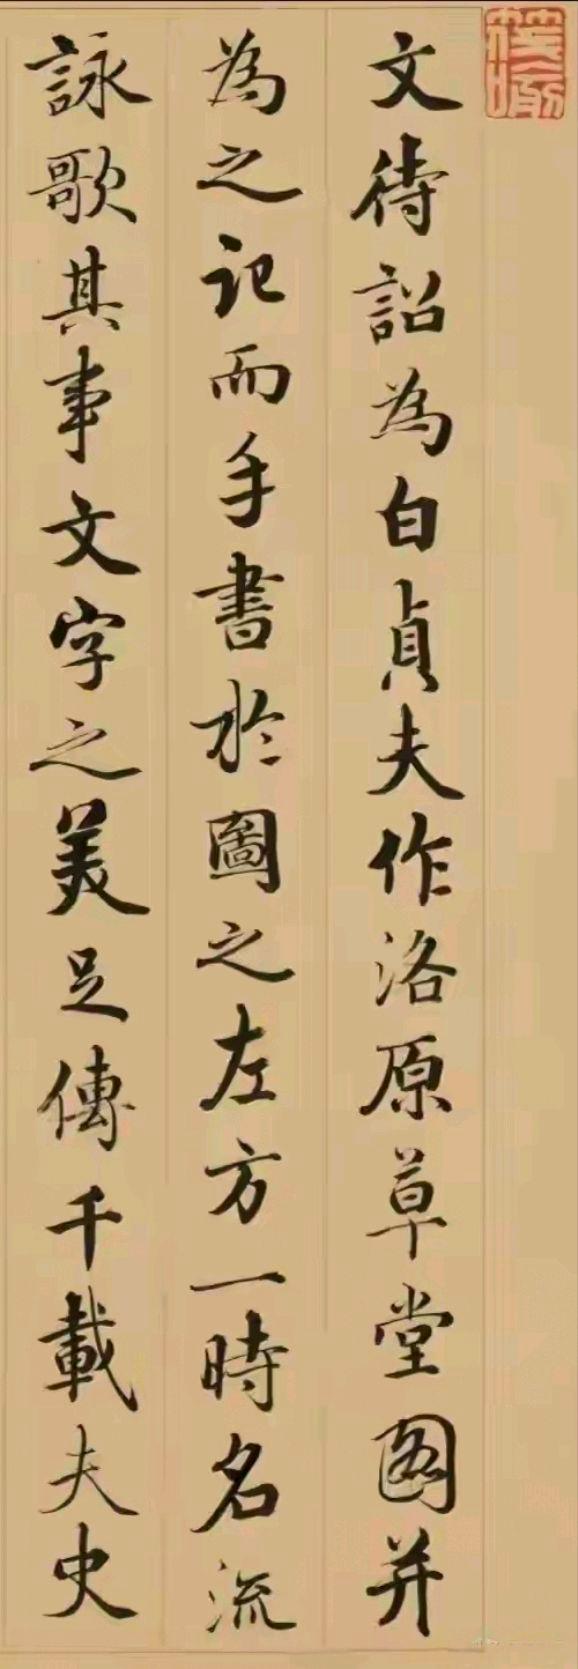 文待詔為白貞夫作洛原草堂圖并
為之記而手書於圖之左方一時名流
詠歌其事文字之美足傳千載夫史